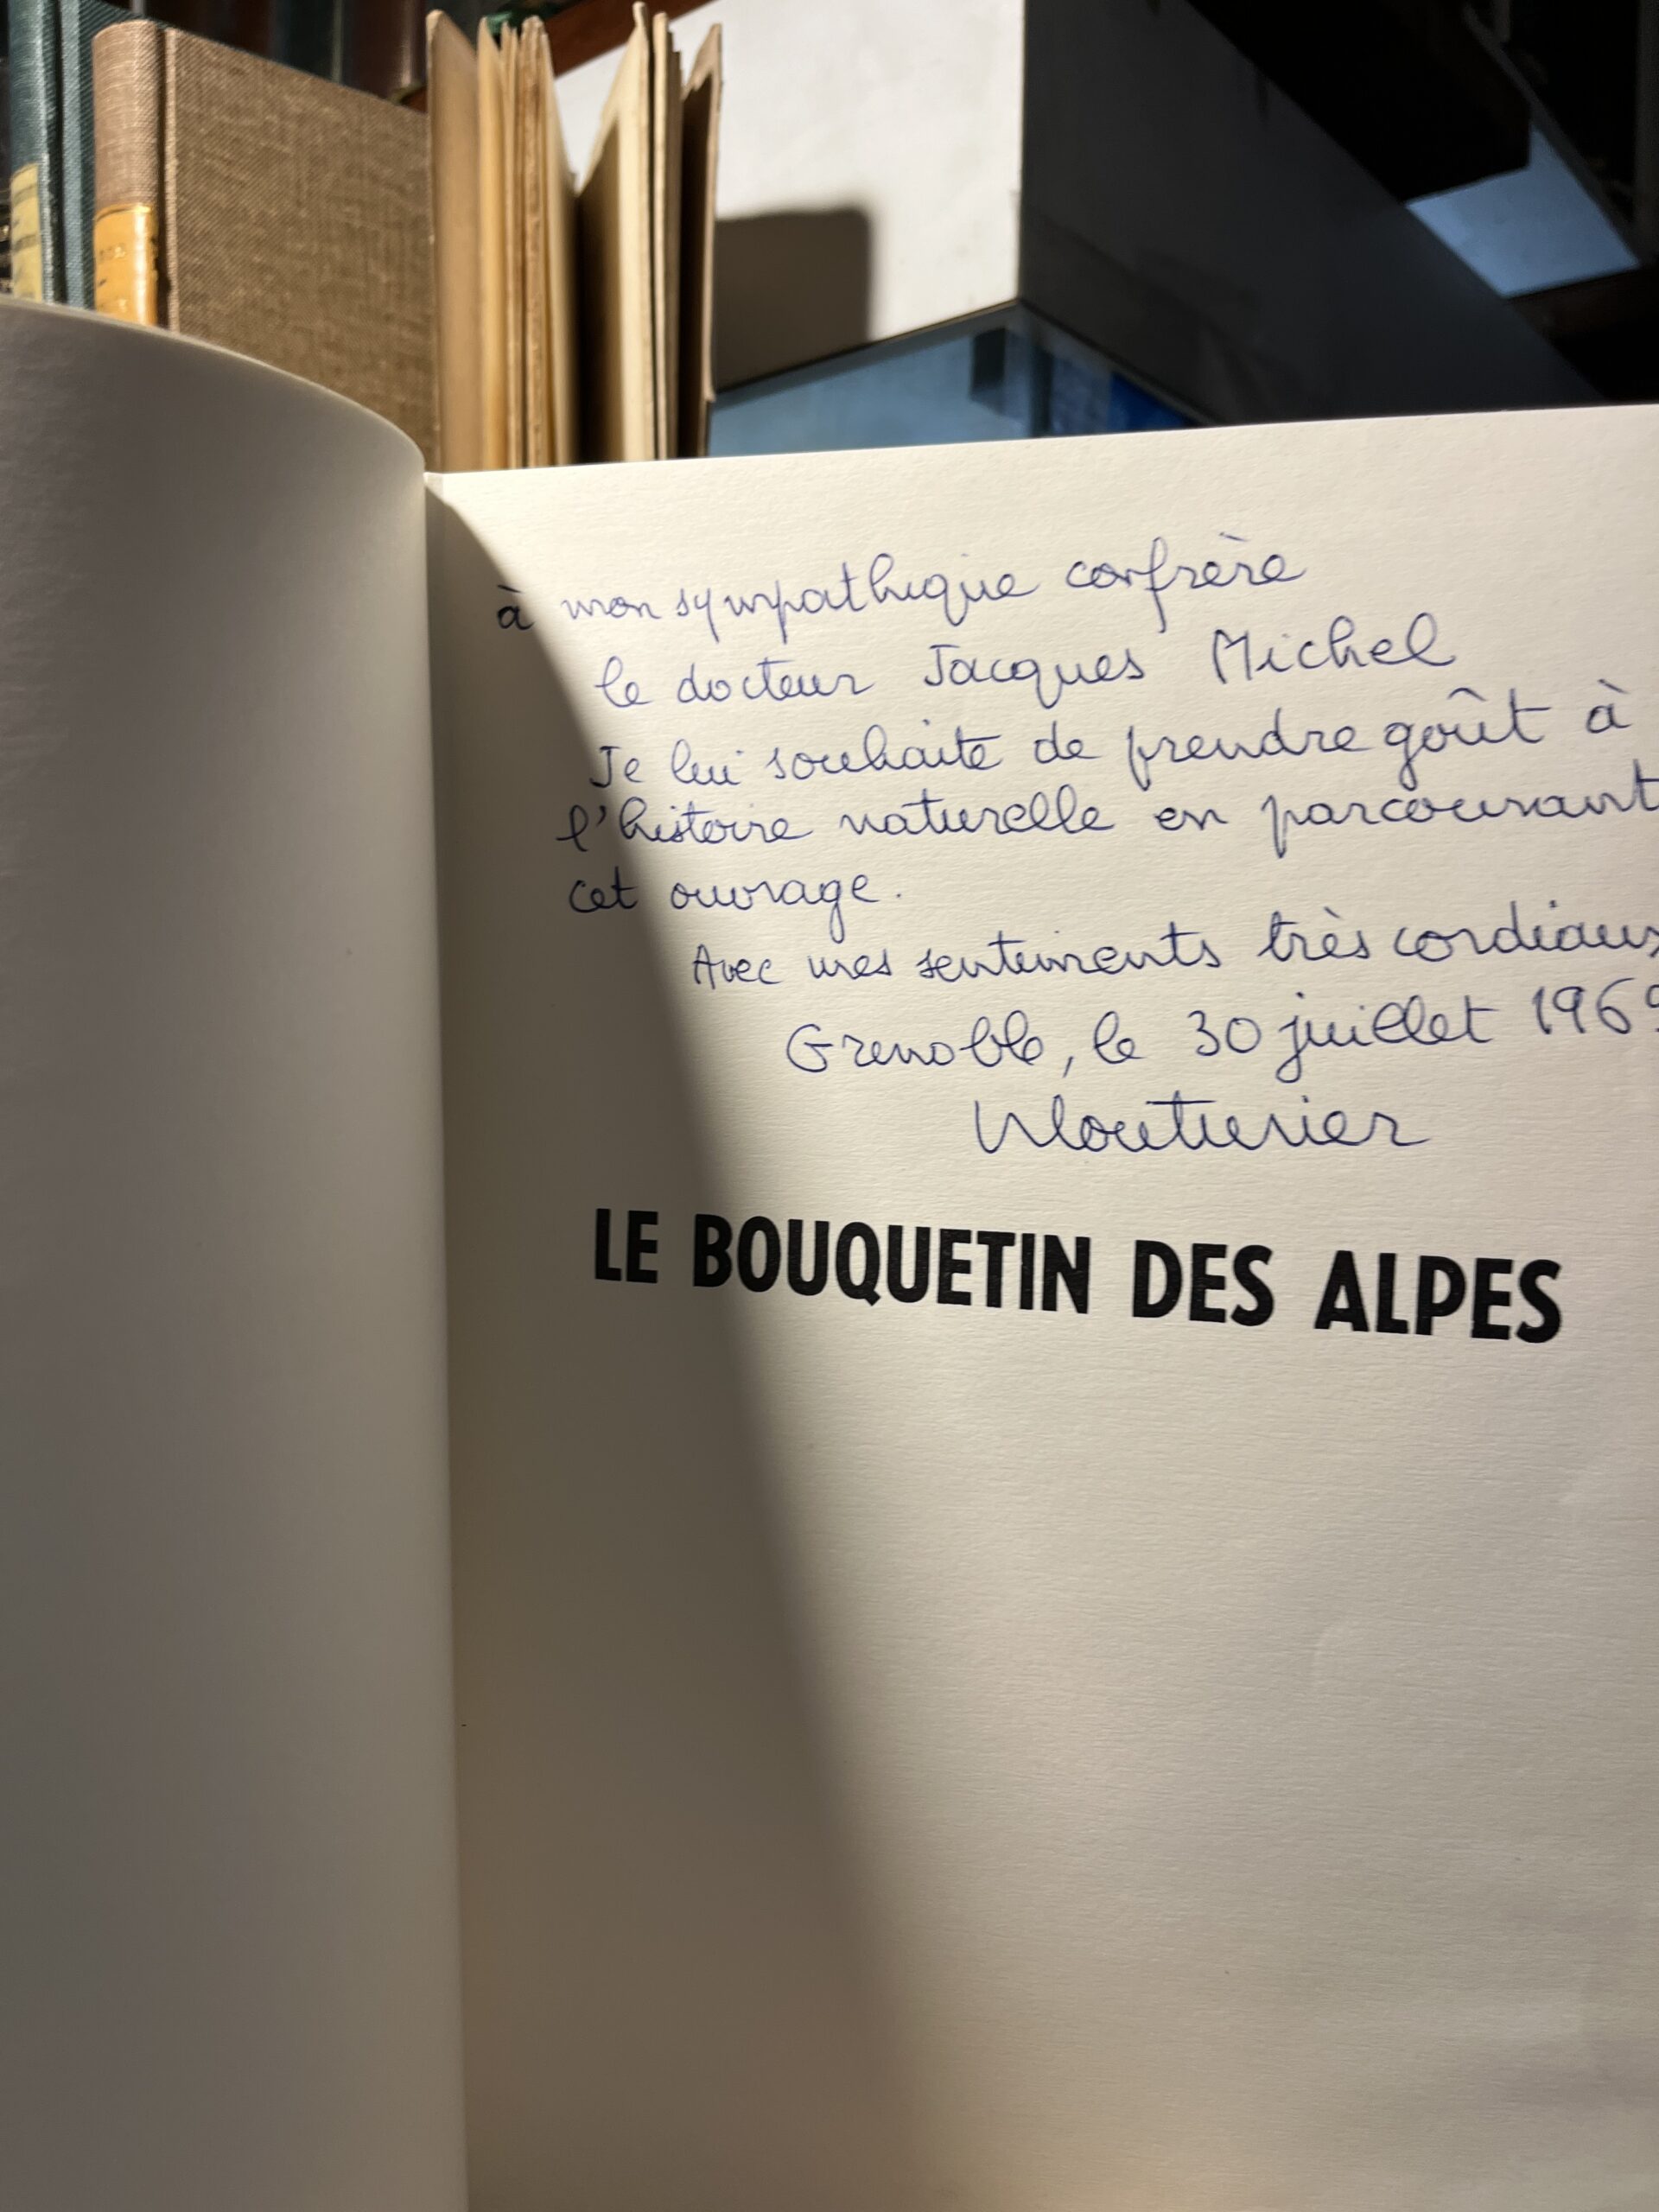 à mon sympathique confrère
le docteur Jacques Michel
Je lui souhaite de prendre goût à
l'histoire naturelle en parcourant
cet ouvrage.
Avec mes sentiments très cordiaux
Grenoble, le 30 juillet 1969
LE BOUQUETIN DES ALPES